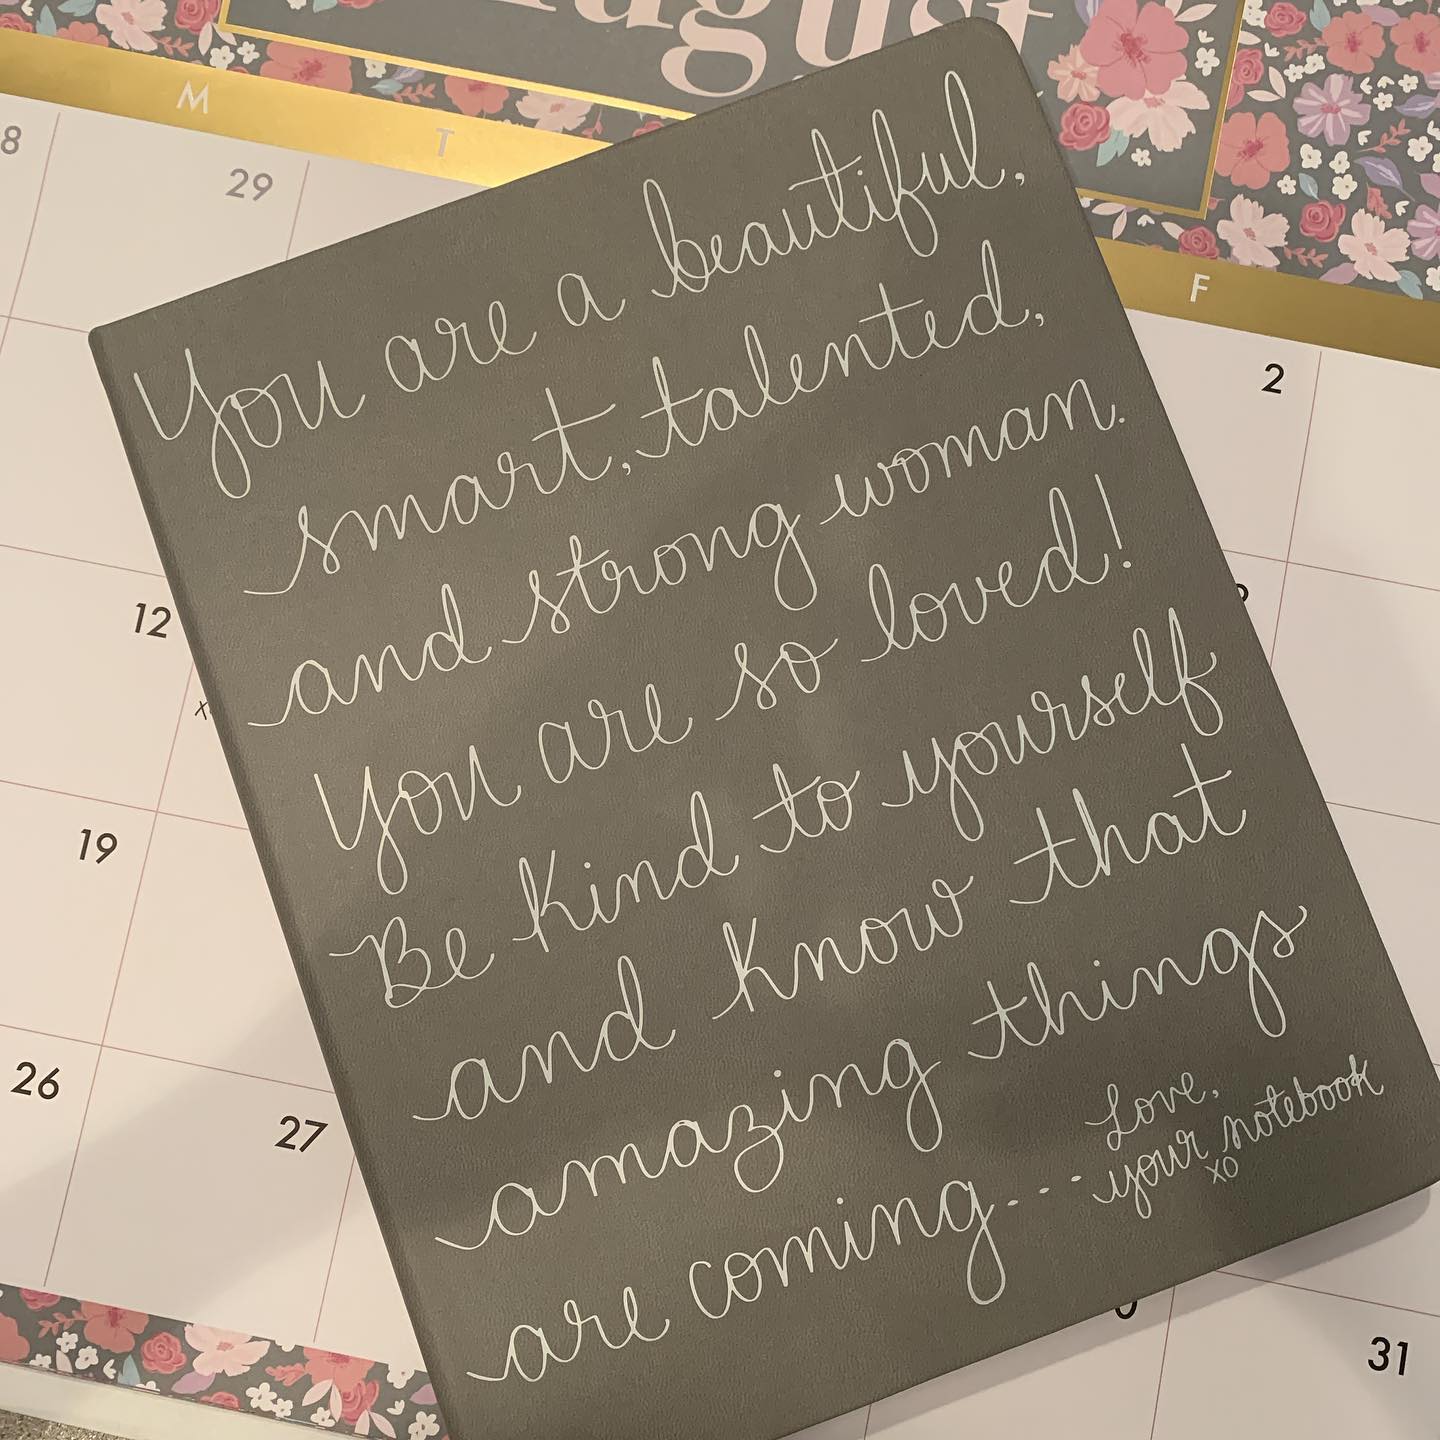 August
M
T
F
8
29
2
12
x
19
26
27
31
You are a beautiful,
smart, talented,
and strong woman.
You are so loved!
Be kind to yourself
and know that
amazing things
are coming...
Love,
your notebook
XO